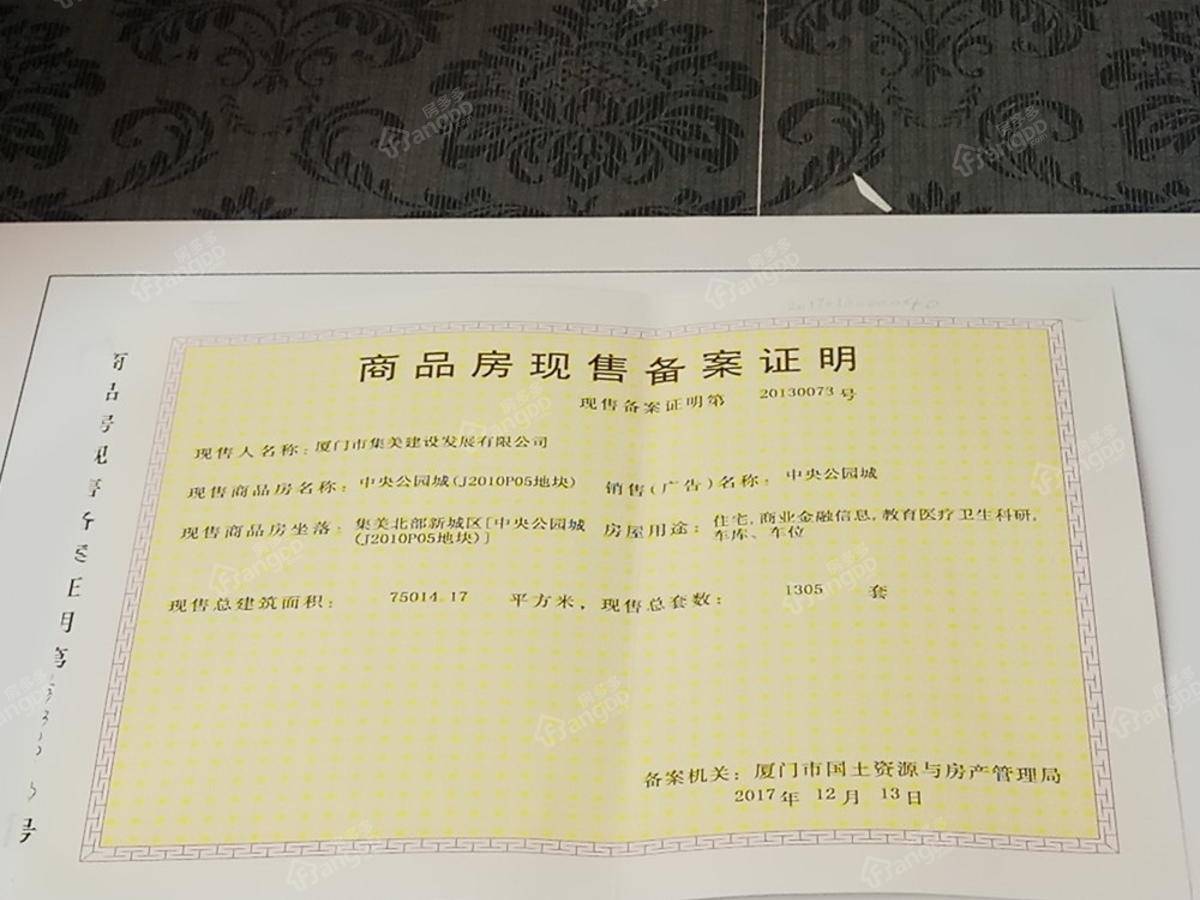 商品房现售备案证明
现售备案证明第 20130073 号
现售人名称：厦门市集美建设发展有限公司
现售商品房名称：中央公园城(J2010P05地块) 销售(广告)名称：中央公园城
现售商品房坐落：集美北部新城区[中央公园城 房屋用途：住宅,商业金融信息,教育医疗卫生科研,
(J2010P05地块)] 车库、车位
现售总建筑面积： 75014.17 平方米，现售总套数： 1305 套
备案机关：厦门市国土资源与房产管理局
2017 年 12 月 13 日
房多多
Fangdd